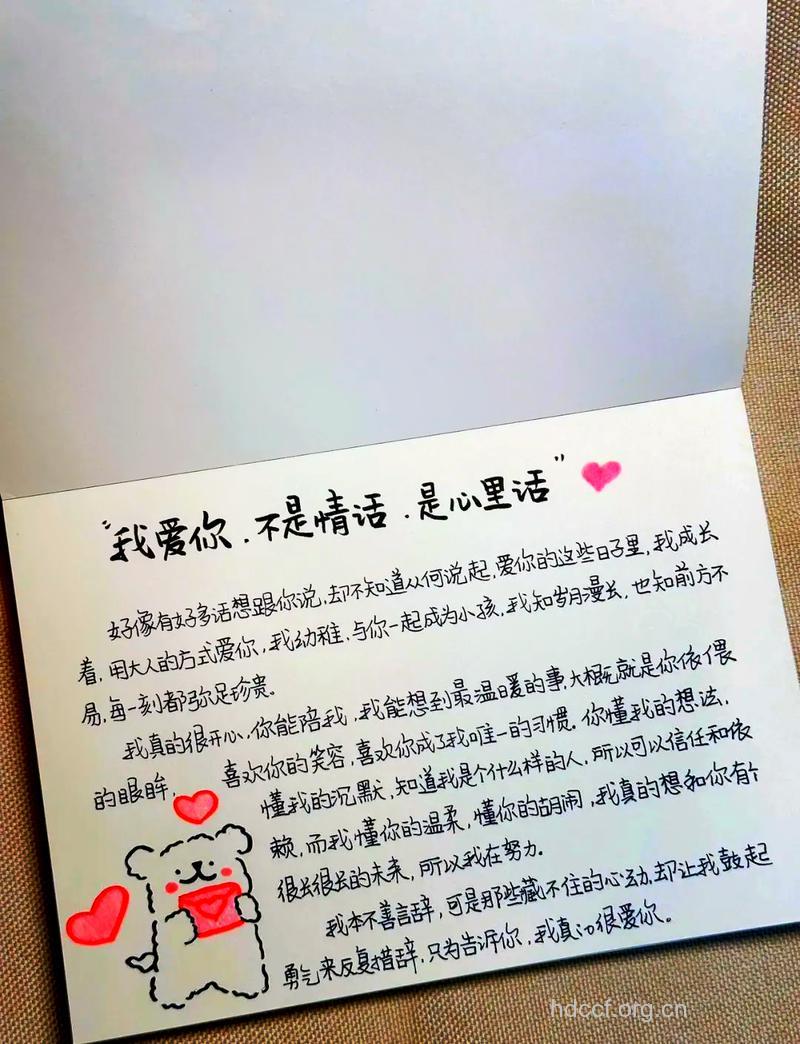 “我爱你.不是情话.是心里话”
好像有好多话想跟你说,却不知道从何说起,爱你的这些日子里,我成长
着,用大人的方式爱你,我幼稚,与你一起成为小孩,我知岁月漫长,也知前方不
易,每一刻都弥足珍贵。
我真的很开心,你能陪我,我能想到最温暖的事,大概就是你依偎
的眼眸, 喜欢你的笑容,喜欢你成了我唯一的习惯.你懂我的想法,
懂我的沉默,知道我是个什么样的人,所以可以信任和依
赖,而我懂你的温柔,懂你的胡闹,我真的想和你有个
很长很长的未来,所以我在努力.
我本不善言辞,可是那些藏不住的心动,却让我鼓起
勇气来反复措辞,只为告诉你,我真的很爱你。
hdccf.org.cn